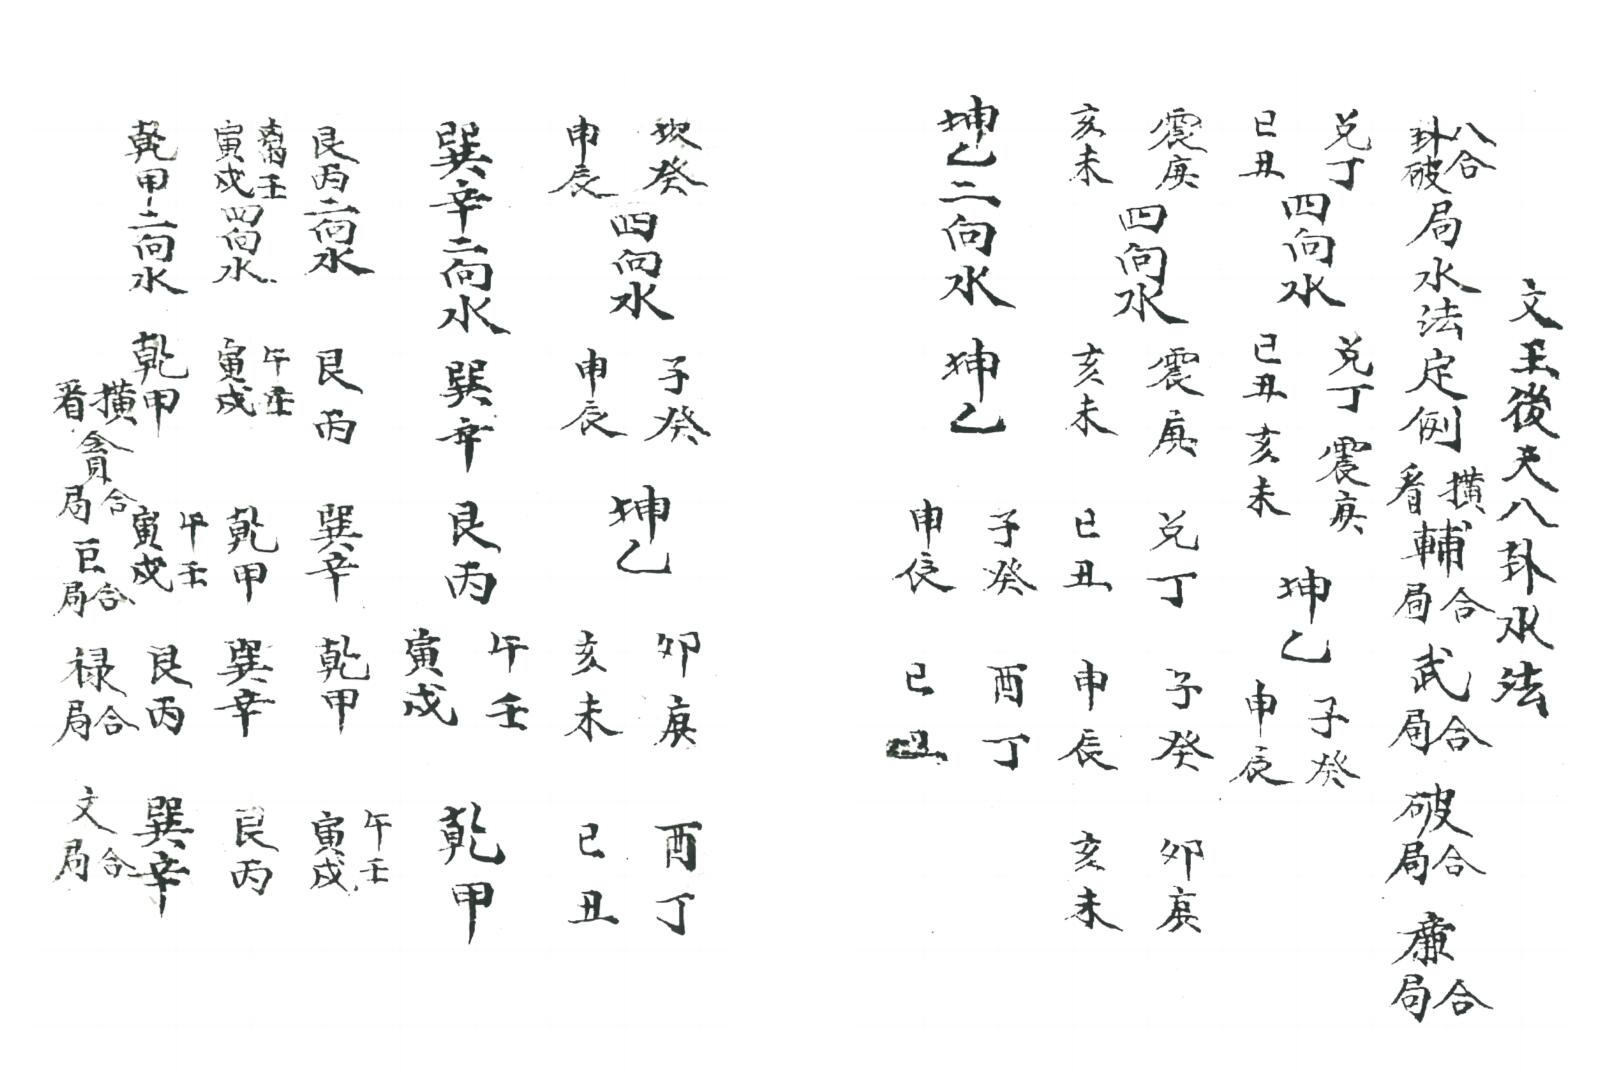 文王後天八卦水法
八合卦破局水法定例 橫看 輔合局 武合局 破合局 廉合局
兌丁巳丑四向水 兌丁巳丑 震庚亥未 坤乙 子癸申辰
震庚亥未四向水 震庚亥未 兌丁巳丑 子癸申辰 卯庚亥未
坤乙二向水 坤乙 子癸申辰 酉丁巳丑
坎癸申辰四向水 子癸申辰 坤乙 卯庚亥未 酉丁巳丑
巽辛二向水 巽辛 艮丙 午壬寅戌 乾甲
艮丙二向水 艮丙 巽辛 乾甲 午壬寅戌
離壬寅戌四向水 午壬寅戌 乾甲 巽辛 艮丙
乾甲二向水 乾甲 午壬寅戌 艮丙 巽辛
橫看 貪合局 巨合局 祿合局 文合局